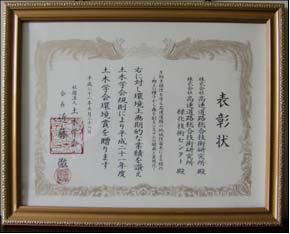 表彰状
株式会社高速道路総合技術研究所殿
株式会社高速道路総合技術研究所
緑化技術センター殿
右に対し環境上画期的な業績を讃え
土木学会規則により平成二十一年度
土木学会環境賞を贈ります
平成二十二年五月二十八日
社団法人土木学会
会長近藤徹